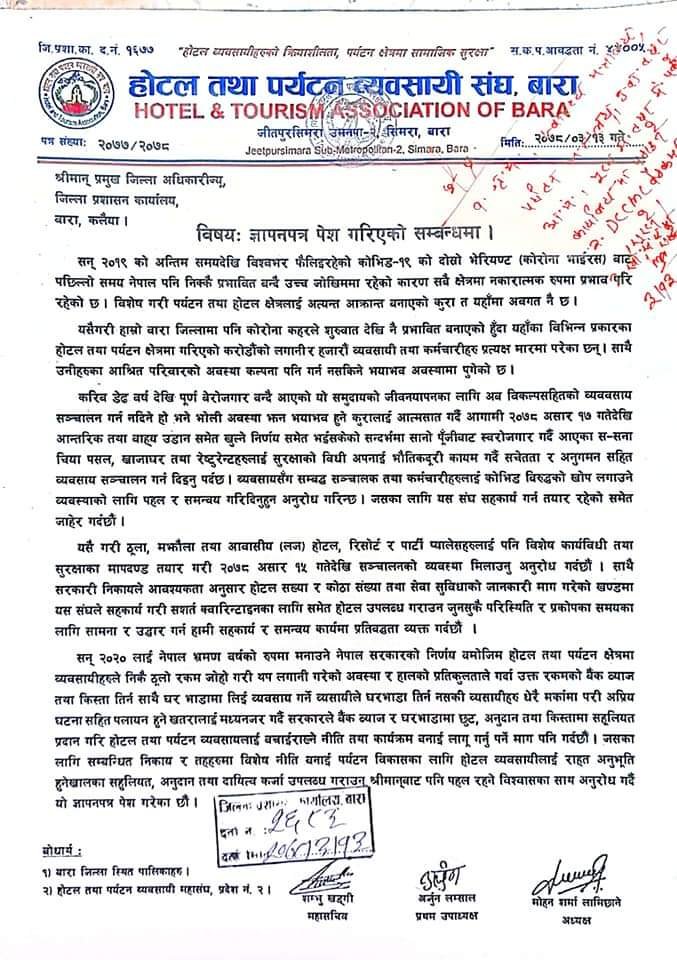 जि.प्रशा.का. द.नं. १६७७
"होटल व्यवसायीहरुको क्रियाशीलता, पर्यटन क्षेत्रमा सामाजिक सुरक्षा"
स.क.प.आवद्धता नं.
होटल तथा पर्यटन व्यवसायी संघ, बारा
HOTEL & TOURISM ASSOCIATION OF BARA
जीतपुरसिमरा उमनपा-२, सिमरा, बारा
Jeetpursimara Sub-Metropoliton-2, Simara, Bara
पत्र संख्याः २०७७/२०७८
मितिः २०७८/०३/१३ गते
श्रीमान् प्रमुख जिल्ला अधिकारीज्यू,
जिल्ला प्रशासन कार्यालय,
बारा, कलैया ।
विषयः ज्ञापनपत्र पेश गरिएको सम्बन्धमा ।
सन् २०१९ को अन्तिम समयदेखि विश्वभर फैलिइरहेको कोभिड-१९ को दोस्रो भेरियण्ट (कोरोना भाईरस) बाट
पछिल्लो समय नेपाल पनि निक्कै प्रभावित बन्दै उच्च जोखिममा रहेको कारण सबै क्षेत्रमा नकारात्मक रुपमा प्रभाव परि
रहेको छ । विशेष गरी पर्यटन तथा होटल क्षेत्रलाई अत्यन्त आक्रान्त बनाएको कुरा त यहाँमा अवगत नै छ ।
यसैगरी हाम्रो बारा जिल्लामा पनि कोरोना कहरले शुरुवात देखि नै प्रभावित बनाएको हुँदा यहाँका विभिन्न प्रकारका
होटल तथा पर्यटन क्षेत्रमा गरिएको करोडौंको लगानीर हजारौं व्यवसायी तथा कर्मचारीहरु प्रत्यक्ष मारमा परेका छन् । साथै
उनीहरुका आश्रित परिवारको अवस्था कल्पना पनि गर्न नसकिने भयाभव अवस्थामा पुगेको छ ।
करिब डेढ वर्ष देखि पूर्ण बेरोजगार बन्दै आएको यो समुदायको जीवनयापनका लागि अब विकल्पसहितको व्यववसाय
सञ्चालन गर्न नदिने हो भने भोली अवस्था झन भयाभव हुने कुरालाई आत्मसात गर्दै आगामी २०७८ असार १७ गतेदेखि
आन्तरिक तथा वाह्य उडान समेत खुल्ने निर्णय समेत भईसकेको सन्दर्भमा सानो पूँजीवाट स्वरोजगार गर्दै आएका स-सना
चिया पसल, खाजाघर तथा रेष्टुरेन्टहरुलाई सुरक्षाको विधी अपनाई भौतिकदूरी कायम गर्दै सचेतता र अनुगमन सहित
व्यवसाय सञ्चालन गर्न दिइनु पर्दछ । व्यवसायसँग सम्बद्ध सञ्चालक तथा कर्मचारीहरुलाई कोभिड विरुद्धको खोप लगाउने
व्यवस्थाको लागि पहल र समन्वय गरिदिनुहुन अनुरोध गरिन्छ । जसका लागि यस संघ सहकार्य गर्न तयार रहेको समेत
जाहेर गर्दछौं ।
यसै गरी ठूला, मझौला तथा आवासीय (लज) होटल, रिसोर्ट र पार्टी प्यालेसहरुलाई पनि विशेष कार्यविधी तथा
सुरक्षाका मापदण्ड तयार गरी २०७८ असार १५ गतेदेखि सञ्चालनको व्यवस्था मिलाउनु अनुरोध गर्दछौं । साथै
सरकारी निकायले आवश्यकता अनुसार होटल सख्या र कोठा संख्या तथा सेवा सुविधाको जानकारी माग गरेको खण्डमा
यस संघले सहकार्य गरी सशर्त क्वारिन्टाइनका लागि समेत होटल उपलब्ध गराउन जुनसुकै परिस्थिति र प्रकोपका समयका
लागि सामना र उद्धार गर्न हामी सहकार्य र समन्वय कार्यमा प्रतिवद्धता व्यक्त गर्दछौं ।
सन् २०२० लाई नेपाल भ्रमण वर्षको रुपमा मनाउने नेपाल सरकारको निर्णय बमोजिम होटल तथा पर्यटन क्षेत्रमा
व्यवसायीहरुले निकै ठूलो रकम जोहो गरी थप लगानी गरेको अवस्था र हालको प्रतिकुलताले गर्वा उक्त रकमको बैंक ब्याज
तथा किस्ता तिर्न साथै घर भाडामा लिई व्यवसाय गर्ने व्यसायीले घरभाडा तिर्न नसकी व्यसायीहरु धेरै मर्कामा परी अप्रिय
घटना सहित पलायन हुने खतरालाई मध्यनजर गर्दै सरकारले बैंक ब्याज र घरभाडामा छुट, अनुदान तथा किस्तामा सहूलियत
प्रदान गरि होटल तथा पर्यटन व्यवसायलाई बचाईराख्ने नीति तथा कार्यक्रम बनाई लागू गर्नु पर्ने माग पनि गर्दछौं । जसका
लागि सम्बन्धित निकाय र तहहरुमा विशेष नीति बनाई पर्यटन विकासका लागि होटल व्यवसायीलाई राहत अनुभूति
हुनेखालका सहुलियत, अनुदान तथा दायित्व कर्जा उपलब्ध गराउन् श्रीमान्वाट पनि पहल रहने विश्वासका साथ अनुरोध गर्दै
यो ज्ञापनपत्र पेश गरेका छौं ।
जिल्ला प्रशासन कार्यालय, बारा
दर्ता नं. :
बोधार्थ :
१) बारा जिल्ला स्थित पालिकाहरु ।
२) होटल तथा पर्यटन व्यवसायी महासंघ, प्रदेश नं. २ ।
शम्भु खड्गी
महासचिव
अर्जुन लम्साल
प्रथम उपाध्यक्ष
मोहन शर्मा लामिछाने
अध्यक्ष